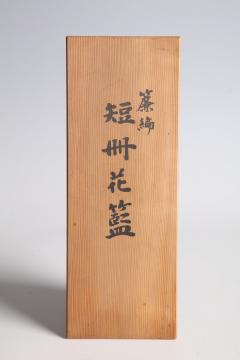 簾編
短冊花籃